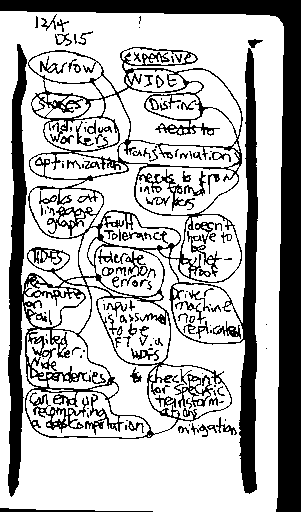 12/14
DS15
expensive
Narrow
WIDE
stages
Distinct
needs to
individual
workers
transformation
optimization
needs to know
into from all
workers
looks at
lineage
graph
fault
Tolerance
doesn't
have to
be
bullet-
proof
HDFS
tolerate
common
errors
recompute
on
fail
input
is assumed
to be
FT via
HDFS
Driver
machine
not
replicated
Failed
worker:
Wide
Dependencies
checkpoints
for specific
transform-
ations
can end up
recomputing
a
mitigation